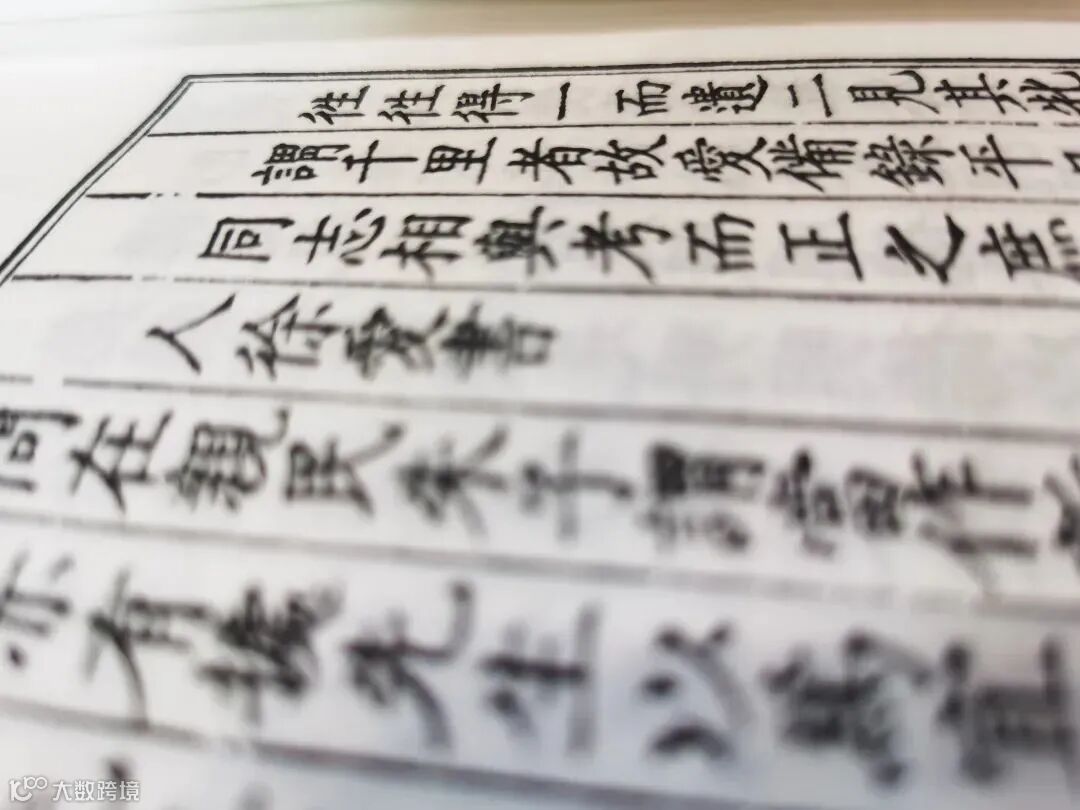 徃徃得一而遺二見其牝
謂千里者故愛備錄平
同志相與考而正之
人徐愛書
問在親民朱子謂當作
亦有據先生以爲宜
大数跨境